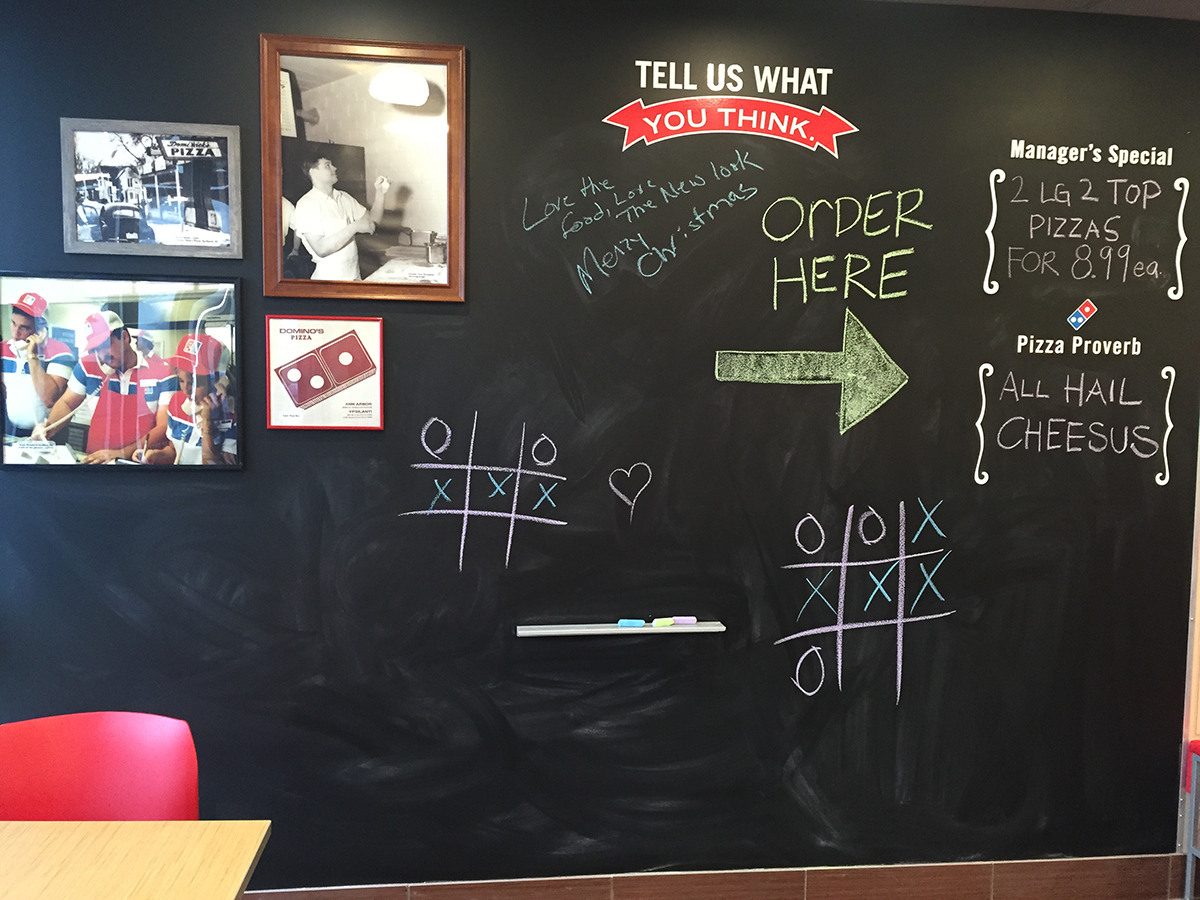 DomiNick's
PIZZA
DOMINO'S
PIZZA
ANN ARBOR
YPSILANTI
TELL US WHAT
YOU THINK.
Love the
food, Love
The New look
Merry
Christmas
ORDER
HERE
Manager's Special
2 LG 2 TOP
PIZZAS
FOR 8.99 ea.
Pizza Proverb
ALL HAIL
CHEESUS
O O
X X X
O O X
X X X
O